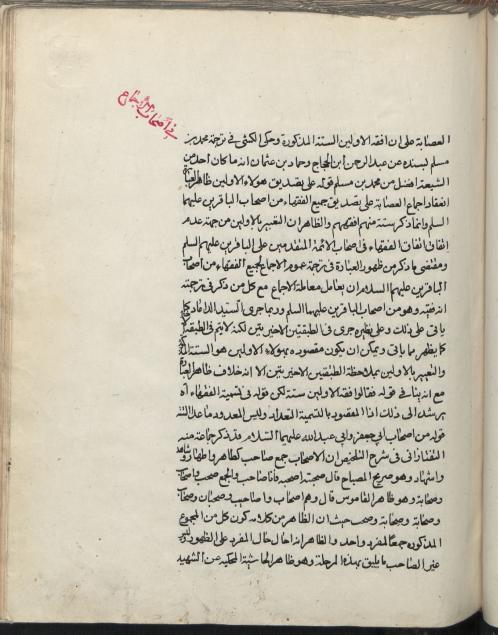 في اصحاب الاجماع
العصابة على ان افقه الاولين الستة المذكورة وحكى الكشي في ترجمة محمد بن
مسلم بسنده عن عبد الرحمن بن الحجاج وحماد بن عثمان انه ما كان احد من
الشيعة افضل من محمد بن مسلم قوله على تصديق هولاء الاولين ظاهر العبارة
انعقاد اجماع العصابة على تصديق جميع الفقهاء من اصحاب الباقرين عليهما
السلم وانما ذكر ستة منهم افقههم والظاهر ان التعبير بالاولين من جهة عدم
اتفاق الفقهاء في اصحاب الائمة المتقدمين على الباقرين عليهم السلم
ومقتضى ما ذكر من ظهور العبارة في ترجمة عموم الاجماع لجميع الفقهاء من اصحاب
الباقرين عليهم السلام ان يعامل معاملة الاجماع مع كل من ذكر في ترجمته
انه فقيه وهو من اصحاب الباقرين عليهما السلم وربما جرى السيد الداماد كما
ياتي على ذلك وعلى نظيره جرى في الطبقتين الاخيرتين لكنه لا يتم في الطبقة
كما يظهر مما ياتي ويمكن ان يكون مقصوده بهولاء الاولين هو الستة
والتعبير بالاولين بملاحظة الطبقتين الاخيرتين الا انه خلاف ظاهر العبارة
مع انه ينافي قوله فقالوا افقه الاولين ستة لكن قوله في تسمية الفقهاء اه
يرشد الى ذلك اذا المقصود بالتسمية التعداد وليس المعدود ما عدا الستة
قوله من اصحاب ابي جعفر وابي عبد الله عليهما السلام قد ذكر جماعة منهم
التفتازاني في شرح التلخيص ان الاصحاب جمع صاحب كطاهر واطهار وشاهد
واشهاد وهو صريح المصباح قال صحبته اصحبه فانا صاحب والجمع صحب واصحاب
وصحابة وهو ظاهر القاموس قال وهم اصحاب واصاحيب وصحبان وصحاب
وصحابة وصحابة وصحب حيث ان الظاهر من كلامه كون كل من الجموع
المذكورة جمعا لمفرد واحد والظاهر انه احال حال المفرد على الظهور وليس
غير الصاحب ما يليق بهذه المرحلة وهو ظاهر الحاشية المحكية عن الشهيد